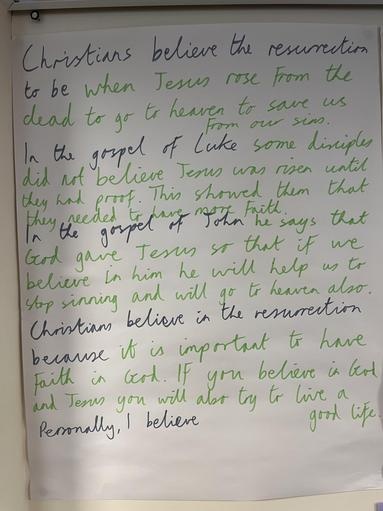 Christians believe the resurrection
to be when Jesus rose from the
dead to go to heaven to save us
from our sins.
In the gospel of Luke some disciples
did not believe Jesus was risen until
they had proof. This showed them that
they needed to have more Faith.
In the gospel of John he says that
God gave Jesus so that if we
believe in him he will help us to
stop sinning and will go to heaven also.
Christians believe in the resurrection
because it is important to have
Faith in God. If you believe in God
and Jesus you will also try to live a
good life.
Personally, I believe